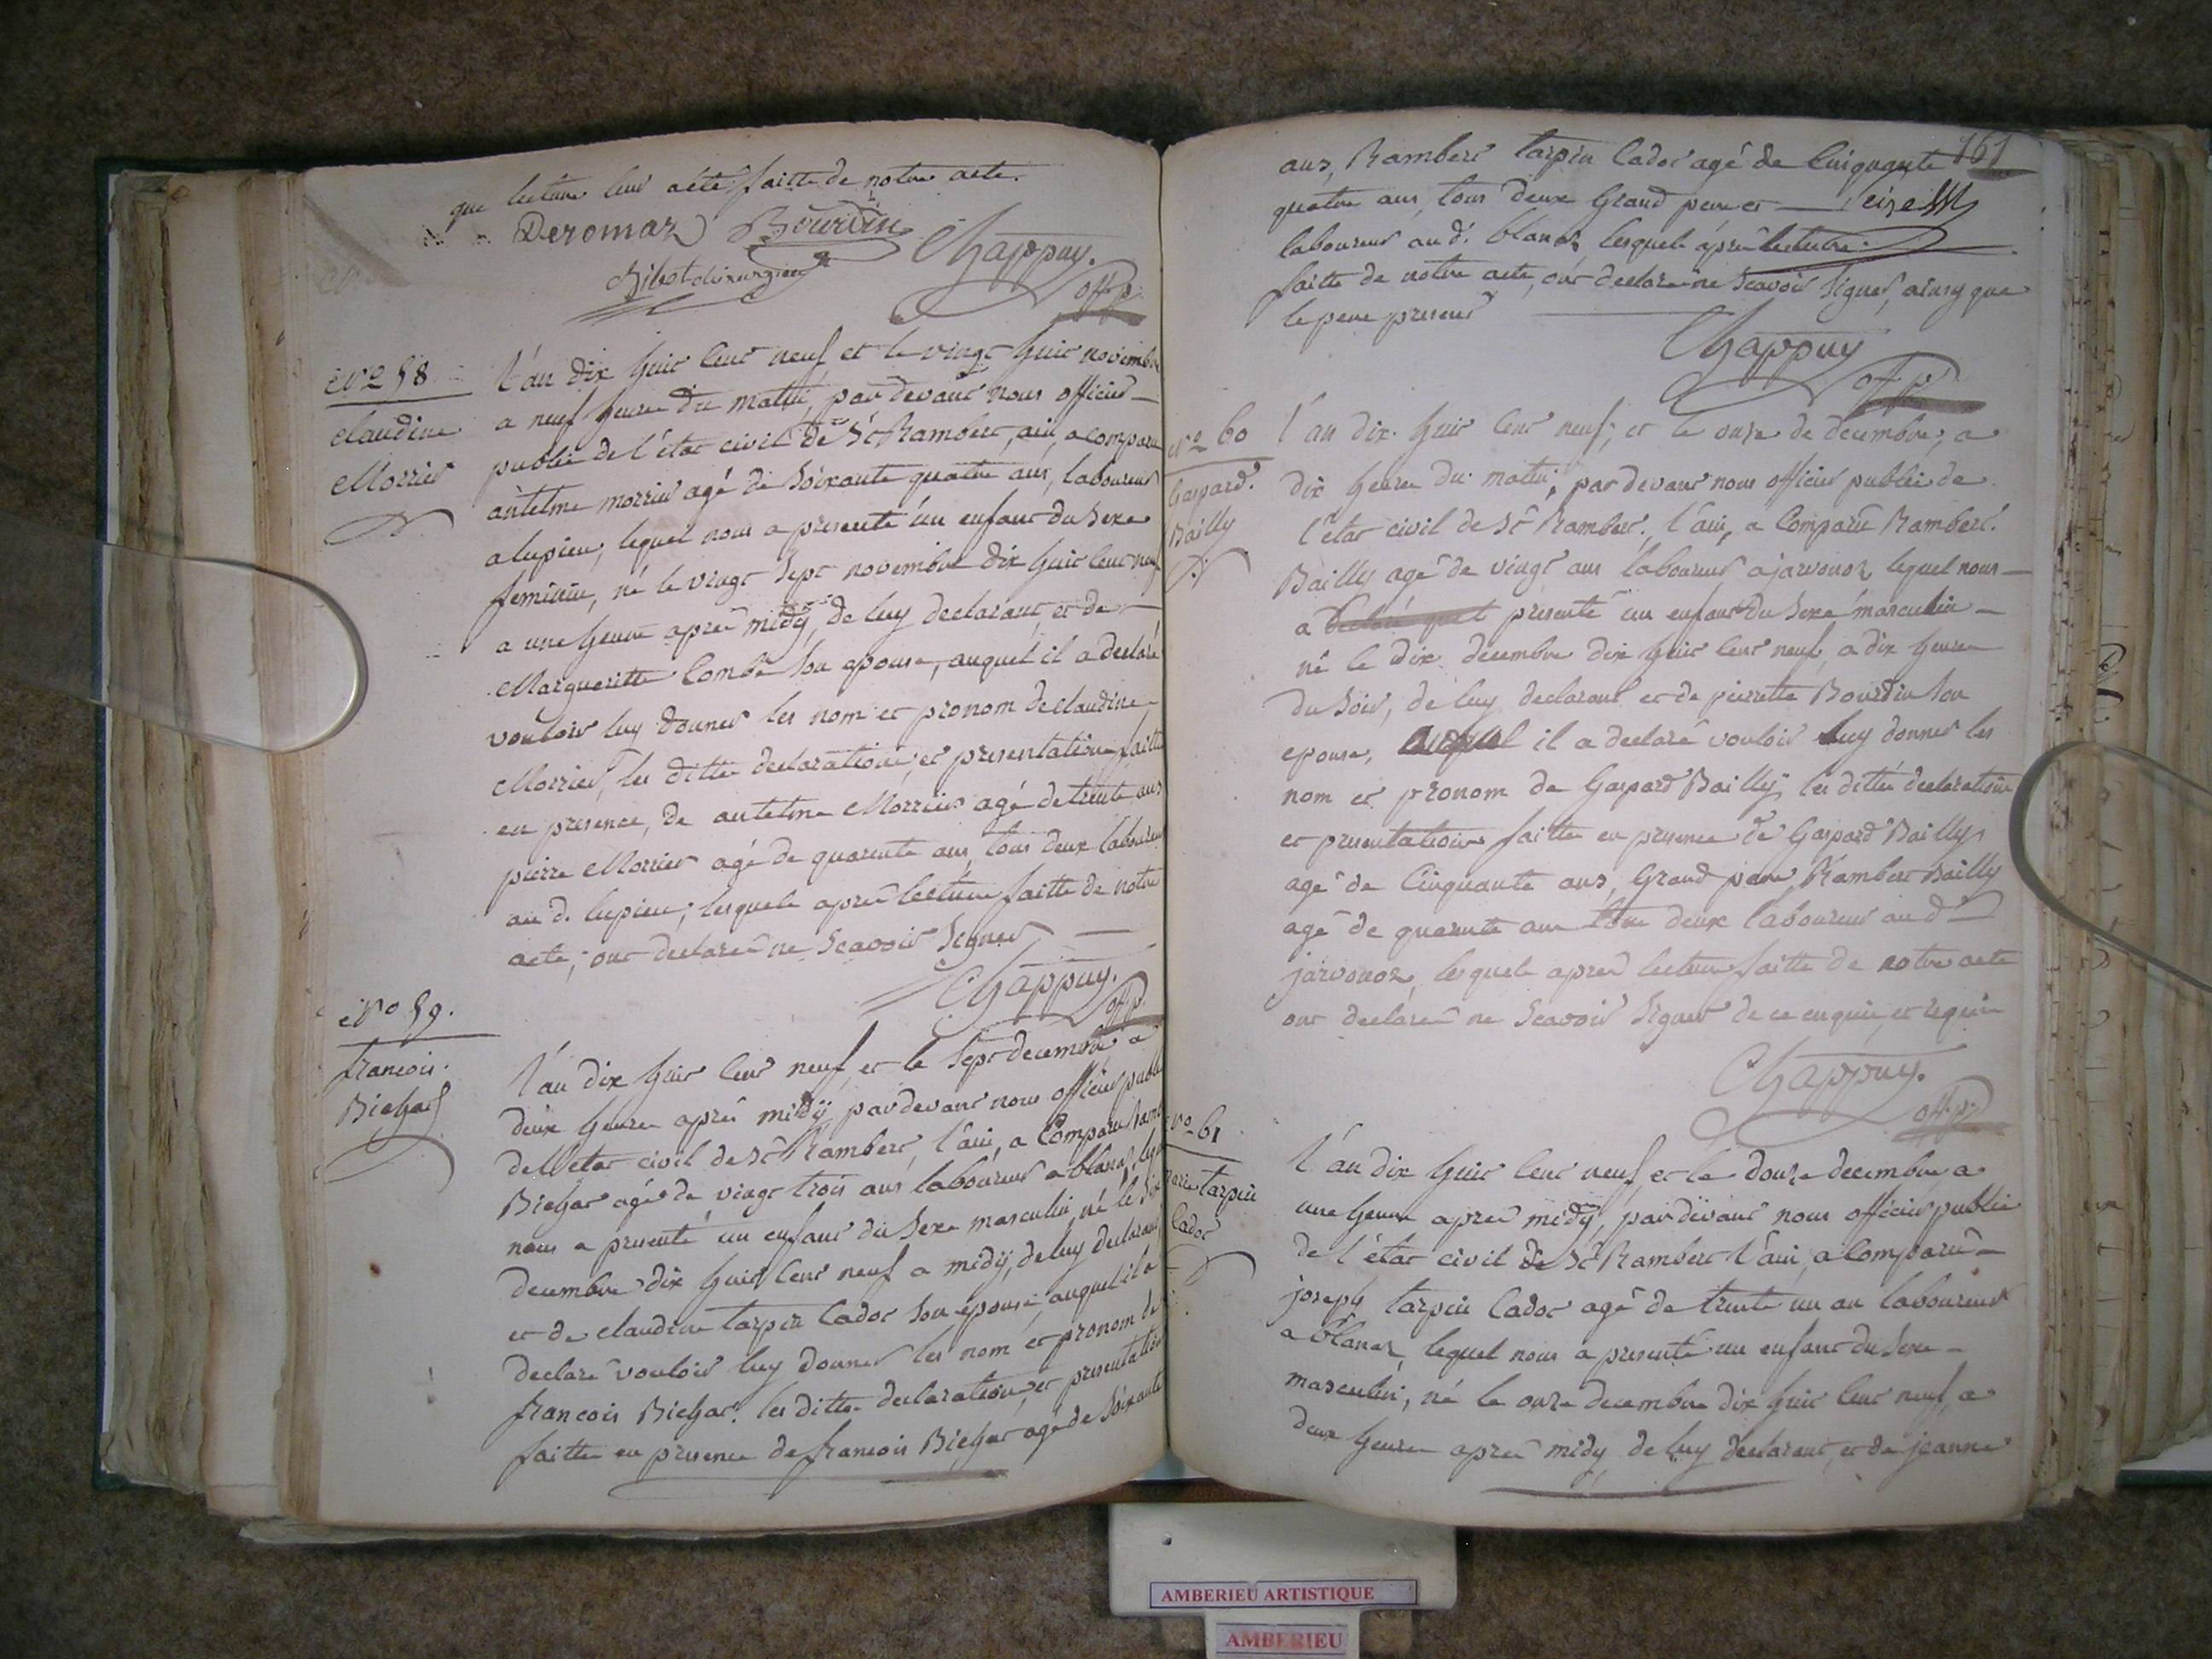 que lecture leur a été faitte de notre acte.
Deromaz Bourdin
Bilot chirurgien Chappuy.
off. p.
N.º 58
Claudine
Morrier
L'an dix huit cent neuf et le vingt huit novembre
a neuf heure du matin, par devant nous officier
public de l'état civil de St Rambert, ain, a comparu
antelme morrier agé de soixante quatre ans, laboureur
a lupieu, lequel nous a presenté un enfant du sexe
feminin, né le vingt sept novembre dix huit cent neuf
a une heure apres midÿ, de luy declarant, et de
Margueritte Combe son epouse, auquel il a declaré
vouloir luy donner les nom et pronom de claudine
Morrier, les ditte declaration, et presentation faitte
en presence, de antelme Morrier agé de trente ans
pierre Morrier agé de quarente ans, tous deux laboureur
au d. lupieu; lesquels apres lecture faitte de notre
acte; ont declaré ne scavoir signer
Chappuy.
off p.
Nº 59.
francois
Bichat
L'an dix huit cent neuf, et le sept decembre a
deux heure apres midÿ, par devant nous officier public
de l'etat civil de St Rambert, l'ain, a comparu
Bichat agé de vingt trois ans laboureur a blanaz,
nous a presenté un enfant du sexe masculin, né le six
decembre dix huit cent neuf a midÿ, de luy declarant
et de claudine tarpin Cadot son epouse, auquel il a
declaré vouloir luy donner les nom et pronom de
francois Bichat. les ditte declaration, et presentation
faitte en presence de francois Bichat agé de soixante
161
ans, Rambert tarpin Cadot agé de Cinquante
quatre ans, tous deux Grand pere et
laboureur au d. blanaz lesquels après lecture
faitte de notre acte, ont declaré ne scavoir signer, ainsy que
le pere present
Chappuy
off. p.
Nº 60
Gaspard
Bailly
L'an dix huit cent neuf, et le onze de decembre, a
dix heure du matin, par devant nous officier public de
l'état civil de St Rambert, l'ain, a Comparu Rambert
Bailly agé de vingt ans laboureur a jarvonoz lequel nous
a declaré quel presenté un enfant du sexe masculin
né le dix decembre dix huit cent neuf, a dix heure
du soir, de luy declarant et de pierrette Bourdin son
epouse, auquel il a declaré vouloir luy donner les
nom et pronom de Gaspard Bailly, les ditte declaration
et presentation faitte en presence de Gaspard Bailly
agé de Cinquante ans, Grand pere, Rambert Bailly
agé de quarente ans tous deux laboureur au d.
jarvonoz, lesquels apres lecture faitte de notre acte
ont declaré ne scavoir signer de ce enquis et requis
Chappuy.
off. p.
Nº 61
marie tarpin
Cadot
L'an dix huit cent neuf, et le douze decembre a
une heure apres midÿ, par devant nous officier public
de l'état civil de St Rambert l'ain, a Comparu
joseph tarpin Cadot agé de trente un an laboureur
a blanaz, lequel nous a presenté un enfant du sexe
masculin, né le onze decembre dix huit cent neuf, a
deux heure apres midy de luy declarant, et de jeanne
AMBERIEU ARTISTIQUE
AMBERIEU